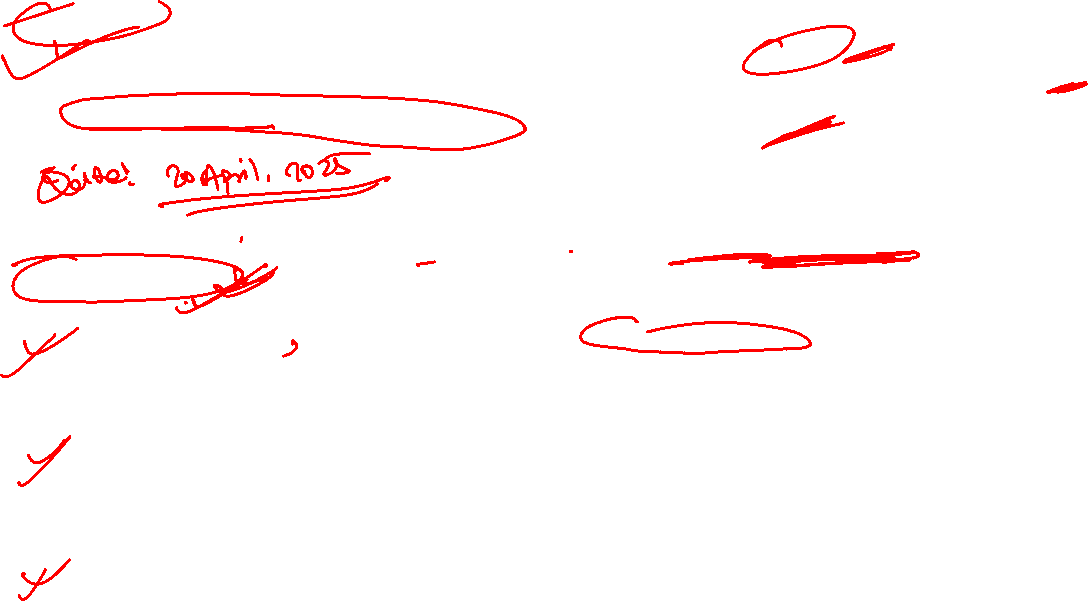 Date: 20 April, 2025